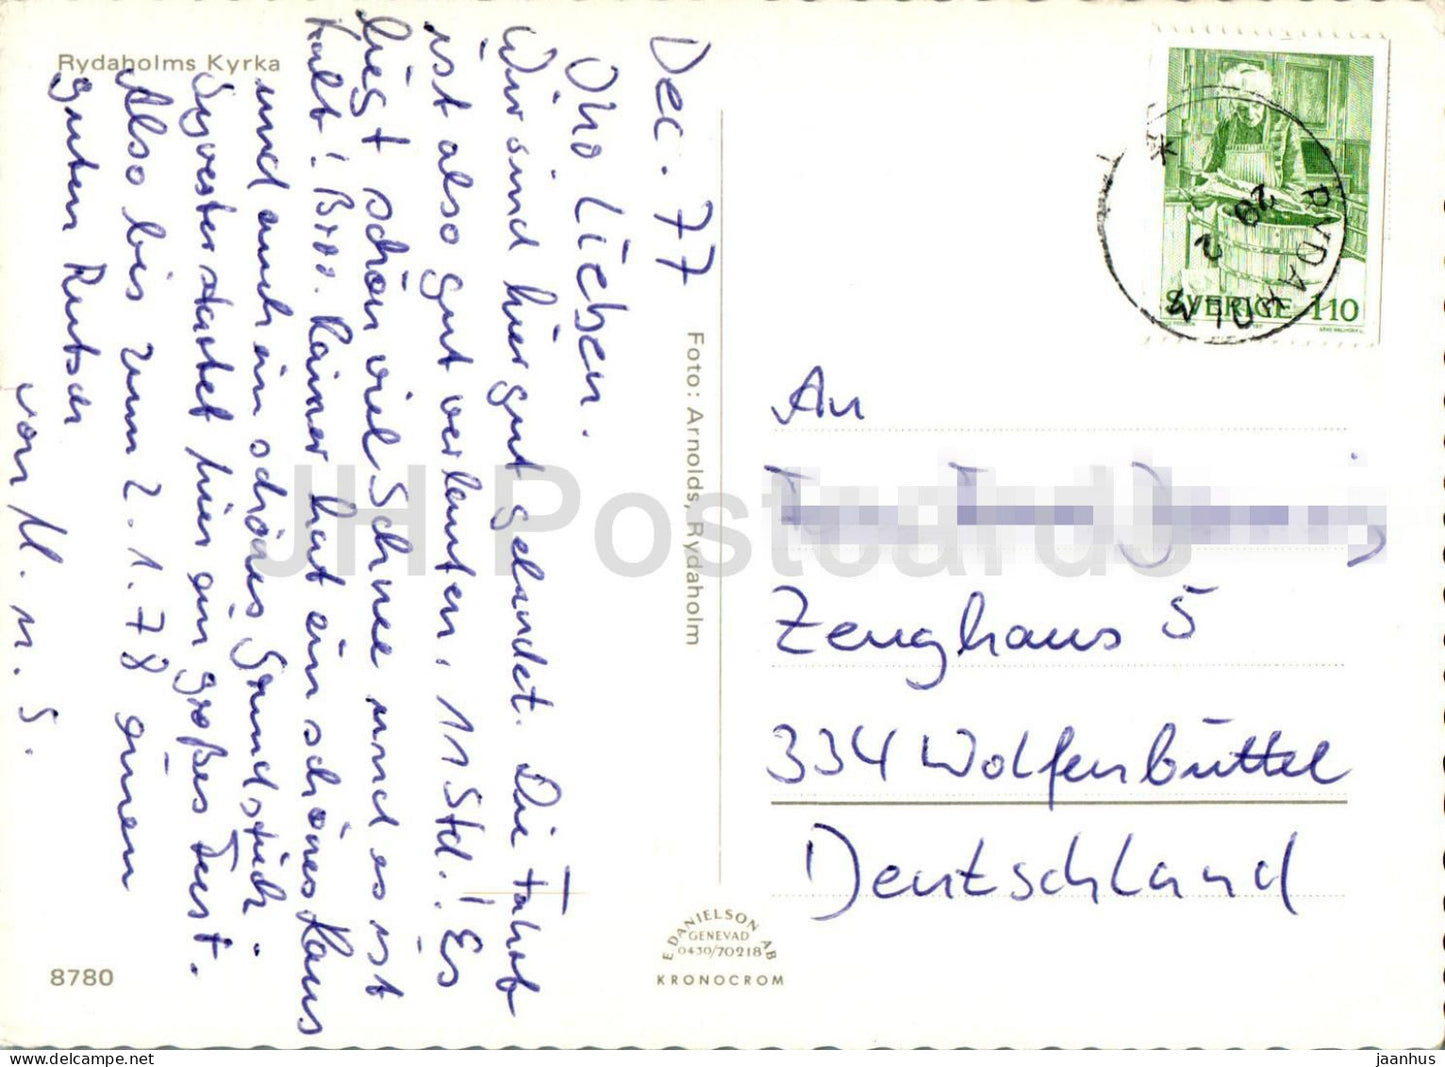 Rydaholms Kyrka
Dec. 77
Oho Lieben.
Wir sind hier gut gelandet. Die Fahrt
ist also gut verlaufen, 11 Std.! Es
liegt schon viel Schnee und es ist
kalt! Brr. Rainer hat ein schönes Haus
und auch ein schönes Grundstück.
Sylvester startet hier ein großes Fest.
Also bis zum 2.1.78 einen
guten Rutsch
von U. u. S.
8780
Foto: Arnolds, Rydaholm
E DANIELSON AB
GENEVAD
0430/70218
KRONOCROM
SVERIGE 110
RYDAHOLM
28
An
Zeughaus 5
334 Wolfenbüttel
Deutschland
JH Postcards
jaanhus — EUR — HipPostcard.com